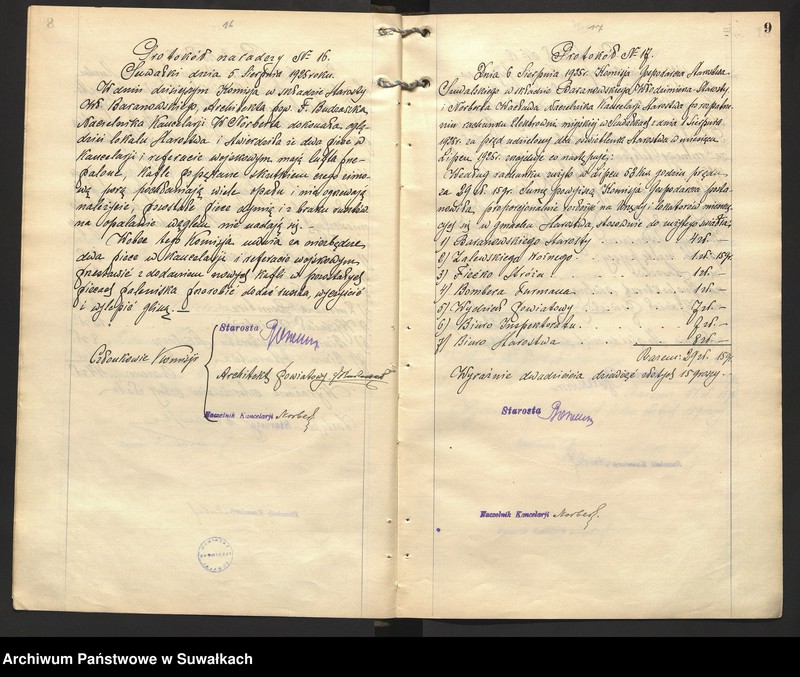 8
16
Protokół narady № 16.
Suwałki dnia 5 Sierpnia 1925 roku.
W dniu dzisiejszym Komisja w składzie Starosty
Wł. Baranowskiego, Architekta pow. F.
Naczelnika Kancelarji W. Norberta dokonała oglę-
dzin lokalu Starostwa i stwierdziła iż dwa piece w
Kancelarji i referacie wojskowym mają
palone, kafle popękane skutkiem czego zimo-
wą porą pochłaniają wiele opału i nie ogrzewają
należycie, pozostałe piece dymią i z braku rusztów
na opalanie węglem nie nadają się. -
Wobec tego Komisja uznała za niezbędne
dwa piece w Kancelarji i referacie wojskowym
przestawić z dodaniem nowych kafli w pozostałych
piecach paleniska przerobić dodać ruszta, wyczyścić
i wylepić gliną. -
Starosta
Członkowie Komisji
Architekt Powiatowy
Naczelnik Kancelarji Norbert
9
17
Protokół № 17.
Dnia 6 Sierpnia 1925 r. Komisja Gospodarcza Starostwa
Suwalskiego w składzie Baranowskiego Włodzimierza Starosty
i Norberta Naczelnika Kancelarji Starostwa po rozpatrze-
niu rachunku Elektrowni miejskiej w Suwałkach z dnia 1 Sierpnia
1925 r. za prąd udzielony dla oświetlenia Starostwa w miesiącu
Lipcu 1925 r. znajduje co następuje:
Według rachunku zużyto w Lipcu godzin prądu
za 29 zł. 15 gr. Sumę powyższą Komisja Gospodarcza posta-
nowiła, proporcjonalnie rozłożyć na Urzędy i lokatorów mieszczą-
cych się w gmachu Starostwa, stosownie do zużytego światła:
1) Baranowskiego Starosty . 4 zł. -
2) Zalewskiego Woźnego . . 1 zł. 15 gr.
3) Fiećko Stróża . . . 1 zł. -
4) Bombera Furmana . . . 1 zł. -
5) Wydział Powiatowy . . . 7 zł. -
6) Biuro Inspektoratu . . . 7 zł. -
7) Biuro Starostwa . . . 8 zł. -
Razem: 29 zł. 15 gr.
Wyraźnie dwadzieścia dziewięć złotych 15 groszy. -
Starosta
Naczelnik Kancelarji Norbert
Archiwum Państwowe w Suwałkach